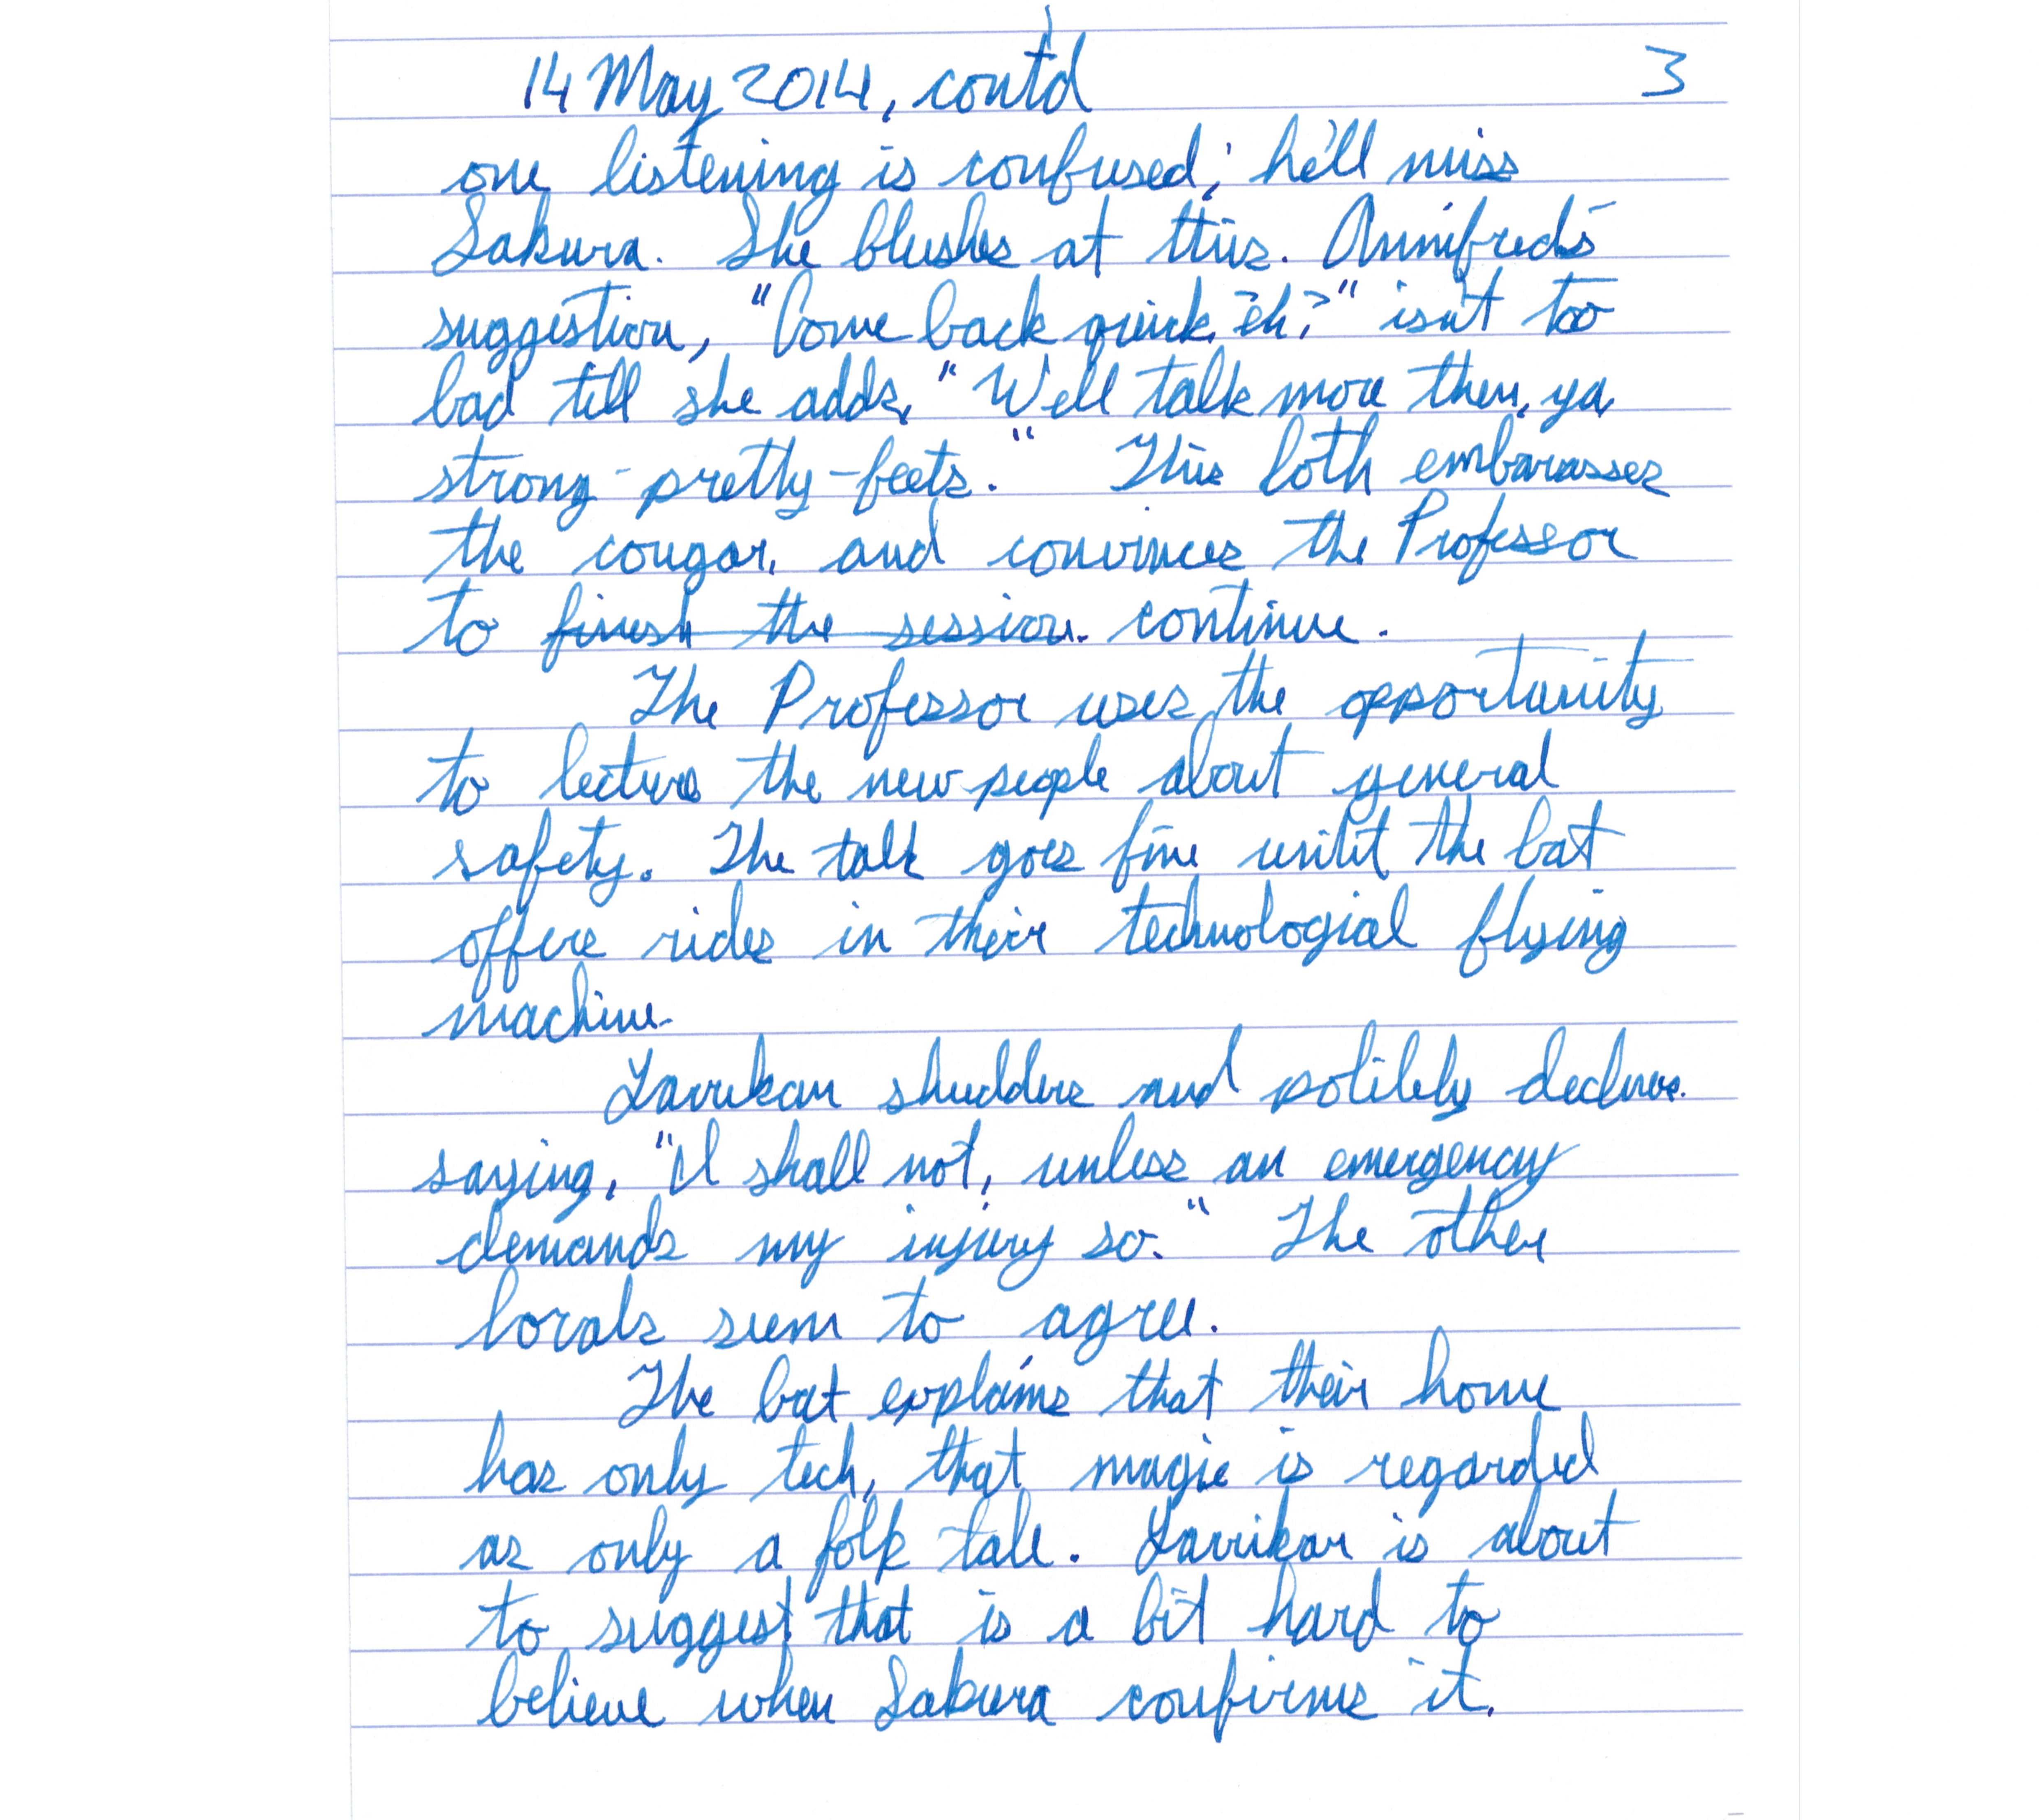 14 May 2014, cont'd 3
one listening is confused; he'll miss
Sakura. She blushes at this. Annifred's
suggestion, "Come back quick, eh?" isn't too
bad till she adds, "We'll talk more then, ya
strong-pretty-feets." This both embarasses
the cougar, and convinces the Professor
to finish the session. continue.
The Professor uses the opportunity
to lecture the new people about general
safety. The talk goes fine until the bat
offers rides in their technologial flying
machine.
Lavrikan shudders and politely declines.
saying, "I shall not, unless an emergency
demands my injury so." The other
locals seem to agree.
The bat explains that their home
has only tech, that magic is regarded
as only a folk tale. Lavrikan is about
to suggest that is a bit hard to
believe when Sakura confirms it.